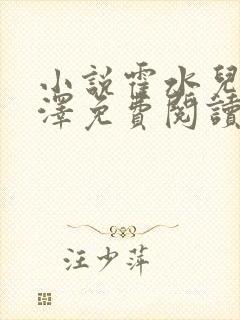 小說霍水兒
澤免費閱讀
汪少萍